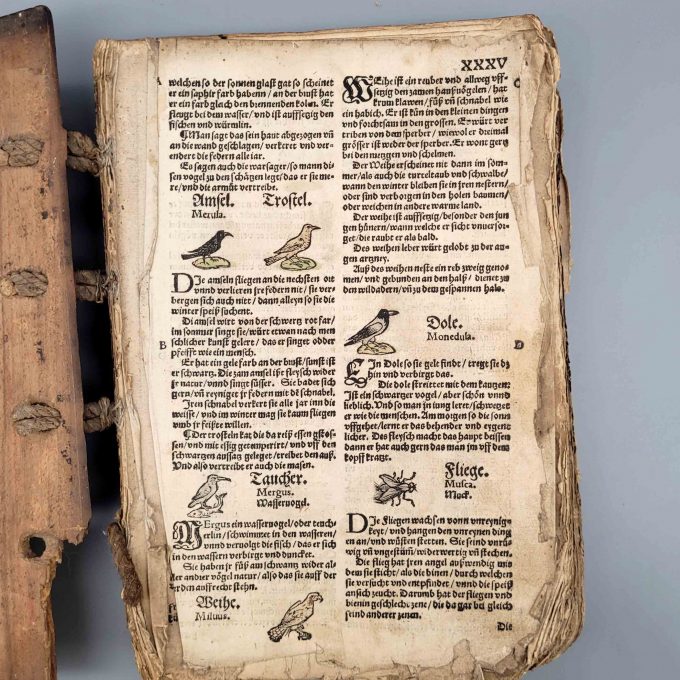 XXXV
welchen so der sonnen glast gat so scheinet
er ein saphir farb habenn / an der brust hat
er ein farb gleich den brennenden kolen. Er
fleugt bei dem wasser / vnd ist auffsetzig den
fischen vnd würmlin.
Man sagt das sein haut abgezogen vñ
an die wand geschlagen / verkeret vnd ver-
endert die federn alle iar.
Es sagen auch die warsager / so mann disen
vogel zu den schätzen legt / das er sie me-
re / vnd die armůt vertreibe.
Amsel. Trostel.
Merula.
DJe amseln fliegen an die nechsten ort
vnnd verlieren jr federn nit / sie ver-
bergen sich auch nitt / dann alleyn so sie die
winter speiß suchent.
Di amsel wirt von der schwertz rot far /
im sommer singt sie / würt etwan nach men
schlicher kunst gelert / das er singet odder
pfeifft wie ein mensch.
Er hat ein gele farb an der brust / sunst ist
er schwartz. Die zam amsel ißt fleysch wider
jr natur / vnnd singt süsser. Sie badet sich
gern / vñ reyniget jr federn mit dē schnabel.
Jren schnabel verkert sie alle jar inn die
weisse / vnd im winter mag sie kaum fliegen
vmb jr feißte willen.
Der trosteln kat die da reiß essen gstos-
sen / vnd mit essig getemperirt / vnd vff den
schwartzen aussatz geleget / treibet den auß.
Vnd also vertreibt er auch die masen.
Taucher.
Mergus.
Wasservogel.
MErgus ein wasservogel / oder teuch-
erlin / schwimmet in den wasseren /
vnnd vervolgt die fisch / das er sich
in den wassern verbirgt vnd duncket.
Sie haben jr füß am schwantz wider al-
ler ander vögel natur / also das sie auff der
erden auffrecht stehn.
Weihe.
Miluus.
WEihe ist ein reuber vnd allweg vff-
setzig den zamen haußvögelen / hat
krum klawen / füß vñ schnabel wie
ein habich. Er ist kün in den kleinen dingen
vnd forchtsam in den grossen. Er würt ver-
triben von dem sperber / wiewol er dreimal
grösser ist weder der sperber. Er wont gern
bei den metzgen vnd schelmen.
Der Weihe erscheinet nie dann im som-
mer / als auch die turteltaub vnd schwalbe /
wann den winter bleiben sie in jren nestern /
oder sind verborgen in den holen baumen /
oder weichen in andere warme land.
Der weihe ist auffsetzig / besonder den jun
gen hünern / wann welche er sicht vnuersor-
get / die raubt er als bald.
Des weihen leber würt gelobt zu der au-
gen artzney.
Auß des weihen neste ein reb zweig geno-
men / vnd gebunden an den halß / dienet zu
den wildadern / vñ zu dem gespannen halß.
Dole.
Monedula.
EJn Dole so sie gelt findt / tregt sie dz
hin vnd verbirgt das.
Die dole streittet mit dem kautzen.
Jst ein schwartzer vogel / aber schön vnnd
lieblich. Vnd so man in jung leret / schwetzet
er wie die menschen. Am morgen so die sonn
vffgehet / lernt er das behender vnd eygent-
licher. Des fleysch macht das haupt beissen
dann er hat auch gern das man im vff dem
kopff kratzt.
Fliege.
Musca.
Muck.
DJe Fliegen wachsen vonn vnreynig-
keyt / vnd hangen den vnreynen ding
en an / vnd wüsten stetten. Sie seind vnrü-
wig vñ vngestüm / widerwertig vñ stechen.
Die flieg hat jren angel auswendig mit
dem sie sticht / als die binen / durch welchen
sie versucht vnd entpfindet / vnnd die speiß
ansich zeucht. Darumb hat der fliegen vnd
bienin geschlecht zene / die da gar bei gleich
seind anderer zenen.
Die